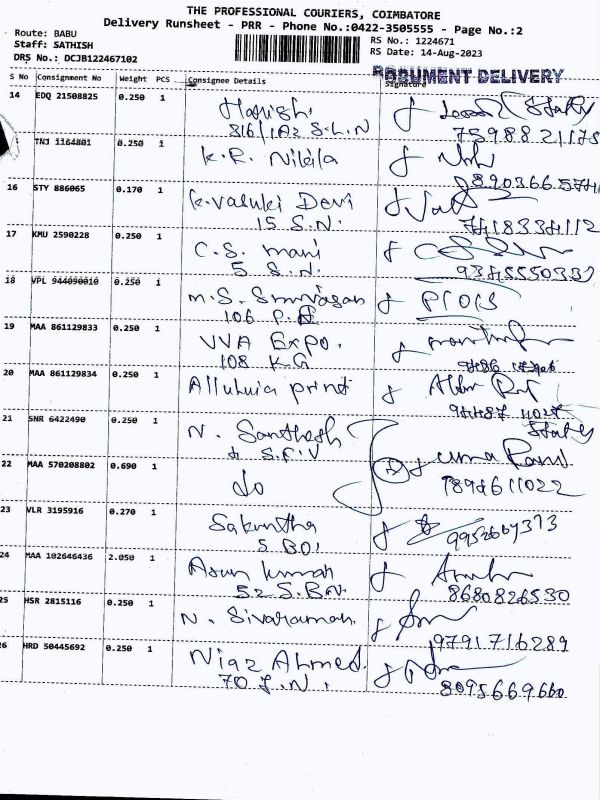 THE PROFESSIONAL COURIERS, COIMBATORE
Delivery Runsheet - PRR - Phone No.:0422-3505555 - Page No.:2
Route: BABU
Staff: SATHISH
DRS No.: DCJB122467102
RS No.: 1224671
RS Date: 14-Aug-2023
DOCUMENT DELIVERY
S No Consignment No Weight PCS Consignee Details Signature
14 EDQ 21508825 0.250 1 Harish
816/1A2 S.L.N
7598821175
TNJ 1164801 0.250 1 K.R. Nikila
16 STY 886065 0.170 1 K. Valuki Devi
15 S.N.
7418334112
17 KMU 2590228 0.250 1 C.S. mani
5 S.N.
9345550332
18 VPL 944090010 0.250 1 M.S. Srinivasan
106 P.
19 MAA 861129833 0.250 1 VVA Expo.
108 K.G
20 MAA 861129834 0.250 1 Alluluia print
21 SNR 6422490 0.250 1 N. Santhosh
4 S.F.V
22 MAA 570208802 0.690 1 do
Uma Rani
7894611022
23 VLR 3195916 0.270 1 Sakuntha
5 BOI
24 MAA 102646436 2.050 1 Arun Kumar
52 S.B.N.
8680826530
25 HSR 2815116 0.250 1 N. Sivaraman
9791716289
26 HRD 50445692 0.250 1 Niaz Ahmed
70 J.N.
8095669660